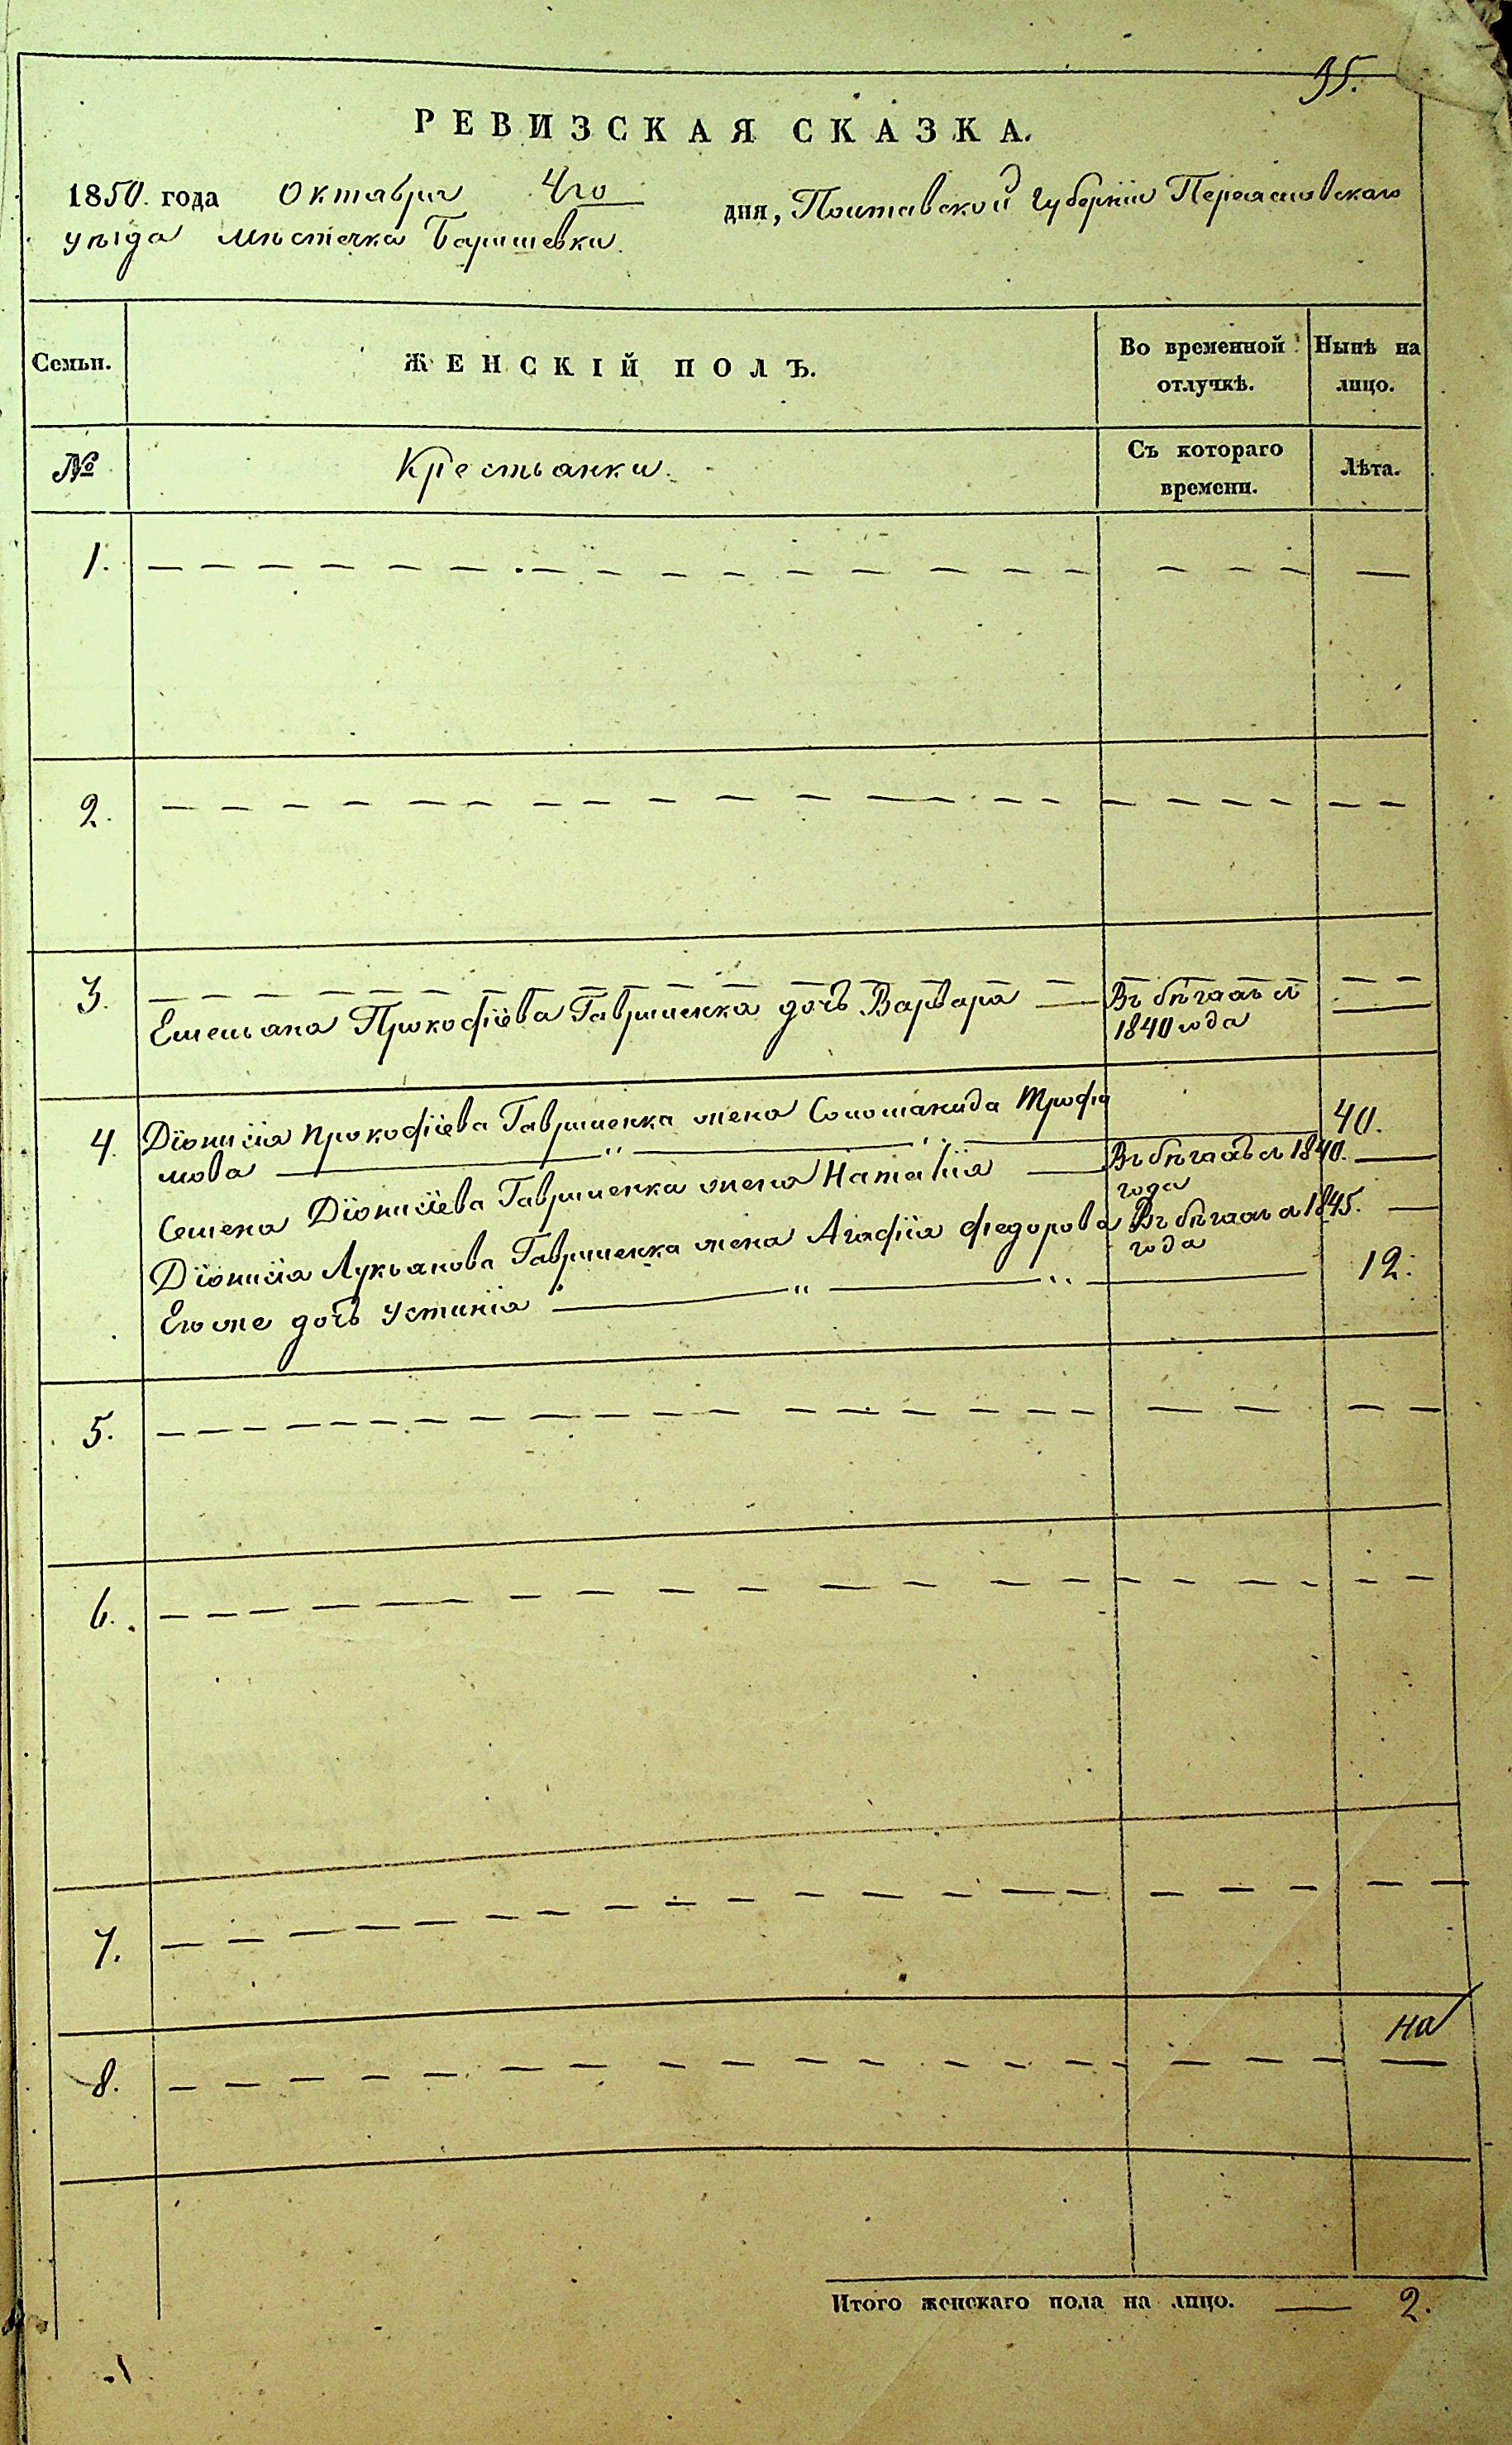 35.
РЕВИЗСКАЯ СКАЗКА.
1850. года Октября 4го дня, Полтавской Губерніи Переясловскаго
уѣзда мѣстечка Баришевки.
Семьи. ЖЕНСКІЙ ПОЛЪ. Во временной отлучкѣ. Нынѣ на лицо.
№ Крестьянки. Съ котораго времени. Лѣта.
1.
2.
3.
Емельяна Прокофіева Гавриленка дочь Варвара — Въ бѣгахъ съ —
1840 года
4. Діонисія Прокофіева Гавриленка жена Соломанида Трофи
мова — „ — „ — 40.
Семена Діонисіева Гавриленка жена Наталія — Въ бѣгахъ съ 1840. —
года
Діонисія Лукьянова Гавриленка жена Агафія Федорова Въ бѣгахъ съ 1845. —
года
Его же дочь Устинія — „ — „ — 12.
5.
6.
7.
8.
на
Итого женскаго пола на лицо. — 2.